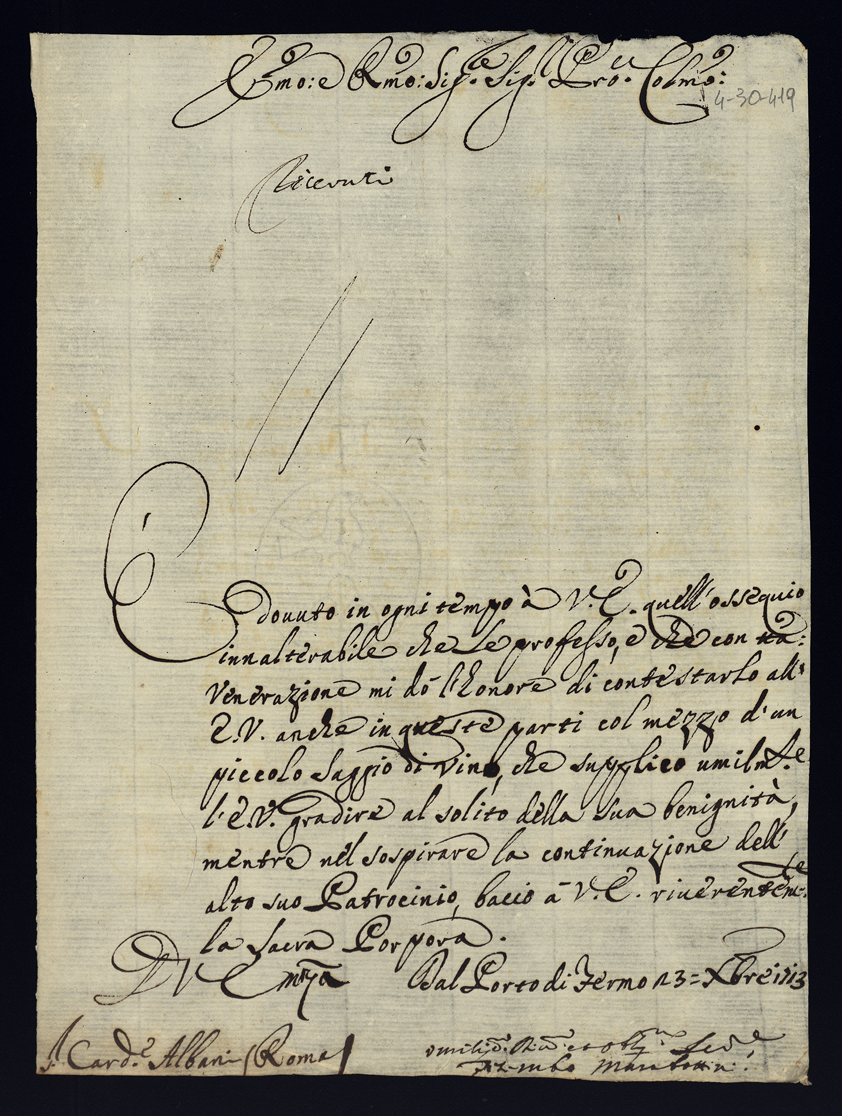 Emo: e Rmo: Sig.re Sig.r Pro.n Colmo:
4-30-419
Riceuuti
È douuto in ogni tempo à V.E. quell'ossequio
innalterabile che Le professo, e che con tà:
Venerazione mi dò l'honore di contestarlo all'
E.V. anche in queste parti col mezzo d'un
piccolo saggio di Vino, che supplico umilm.te
l'E.V. gradire al solito della sua benignità,
mentre nel sospirare la continuazione dell'
alto suo Patrocinio, bacio à V.E. riuerentem.te
la Sacra Porpora.
D V Emza Dal Porto di Fermo 13 = Xbre 1713
S. Card.e Albani (Roma)